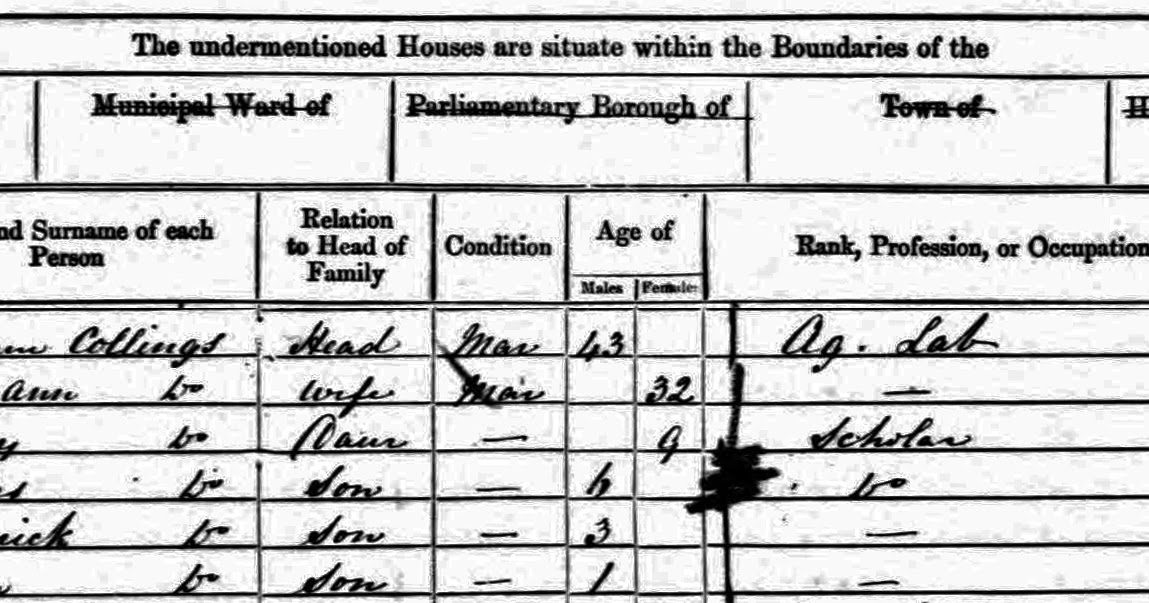 The undermentioned Houses are situate within the Boundaries of the
Municipal Ward of Parliamentary Borough of Town of H
nd Surname of each Person Relation to Head of Family Condition Age of Males Females Rank, Profession, or Occupation
Collings Head Mar 43 Ag. Lab
ann Do Wife Mar 32 —
y Do Daur — 9 Scholar
s Do Son — 6 Do
rick Do Son — 3 —
Do Son — 1 —